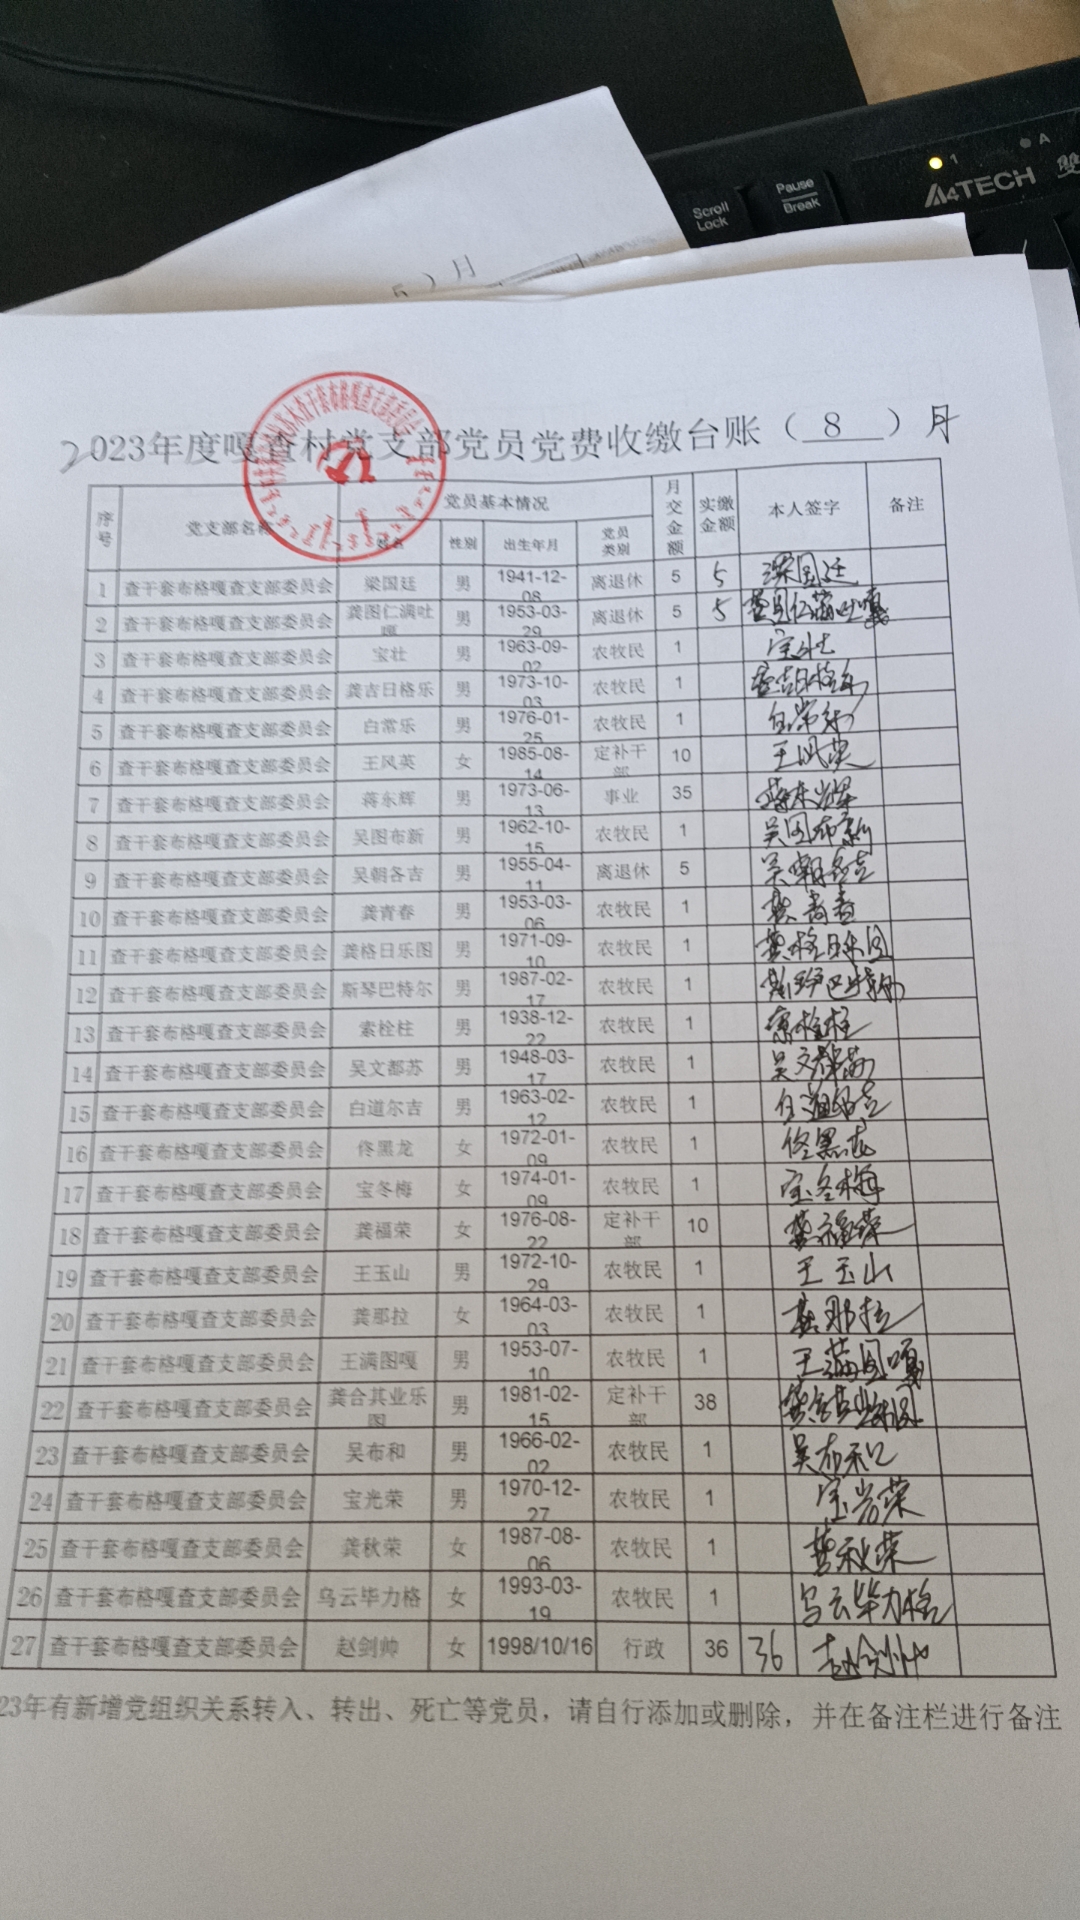 ）月
Scroll Lock
Pause Break
1
A
A4TECH 雙
2023年度嘎查村党支部党员党费收缴台账（8）月
序号 党支部名称 党员基本情况 月交金额 实缴金额 本人签字 备注
姓名 性别 出生年月 党员类别
1 查干套布格嘎查支部委员会 梁国廷 男 1941-12-08 离退休 5 5 梁国廷
2 查干套布格嘎查支部委员会 龚图仁满吐嘎 男 1953-03-29 离退休 5 5 龚图仁满吐嘎
3 查干套布格嘎查支部委员会 宝壮 男 1963-09-02 农牧民 1 宝壮
4 查干套布格嘎查支部委员会 龚吉日格乐 男 1973-10-03 农牧民 1 龚吉日格乐
5 查干套布格嘎查支部委员会 白常乐 男 1976-01-25 农牧民 1 白常乐
6 查干套布格嘎查支部委员会 王风英 女 1985-08-14 定补干部 10 王风英
7 查干套布格嘎查支部委员会 蒋东辉 男 1973-06-13 事业 35 蒋东辉
8 查干套布格嘎查支部委员会 吴图布新 男 1962-10-15 农牧民 1 吴图布新
9 查干套布格嘎查支部委员会 吴朝各吉 男 1955-04-11 离退休 5 吴朝各吉
10 查干套布格嘎查支部委员会 龚青春 男 1953-03-06 农牧民 1 龚青春
11 查干套布格嘎查支部委员会 龚格日乐图 男 1971-09-10 农牧民 1 龚格日乐图
12 查干套布格嘎查支部委员会 斯琴巴特尔 男 1987-02-17 农牧民 1 斯琴巴特尔
13 查干套布格嘎查支部委员会 索栓柱 男 1938-12-22 农牧民 1 索栓柱
14 查干套布格嘎查支部委员会 吴文都苏 男 1948-03-17 农牧民 1 吴文都苏
15 查干套布格嘎查支部委员会 白道尔吉 男 1963-02-12 农牧民 1 白道尔吉
16 查干套布格嘎查支部委员会 佟黑龙 女 1972-01-09 农牧民 1 佟黑龙
17 查干套布格嘎查支部委员会 宝冬梅 女 1974-01-09 农牧民 1 宝冬梅
18 查干套布格嘎查支部委员会 龚福荣 女 1976-08-22 定补干部 10 龚福荣
19 查干套布格嘎查支部委员会 王玉山 男 1972-10-29 农牧民 1 王玉山
20 查干套布格嘎查支部委员会 龚那拉 女 1964-03-03 农牧民 1 龚那拉
21 查干套布格嘎查支部委员会 王满图嘎 男 1953-07-10 农牧民 1 王满图嘎
22 查干套布格嘎查支部委员会 龚合其业乐图 男 1981-02-15 定补干部 38
23 查干套布格嘎查支部委员会 吴布和 男 1966-02-02 农牧民 1 吴布和
24 查干套布格嘎查支部委员会 宝光荣 男 1970-12-27 农牧民 1 宝光荣
25 查干套布格嘎查支部委员会 龚秋荣 女 1987-08-06 农牧民 1 龚秋荣
26 查干套布格嘎查支部委员会 乌云毕力格 女 1993-03-19 农牧民 1 乌云毕力格
27 查干套布格嘎查支部委员会 赵剑帅 女 1998/10/16 行政 36 36 赵剑帅
23年有新增党组织关系转入、转出、死亡等党员，请自行添加或删除，并在备注栏进行备注